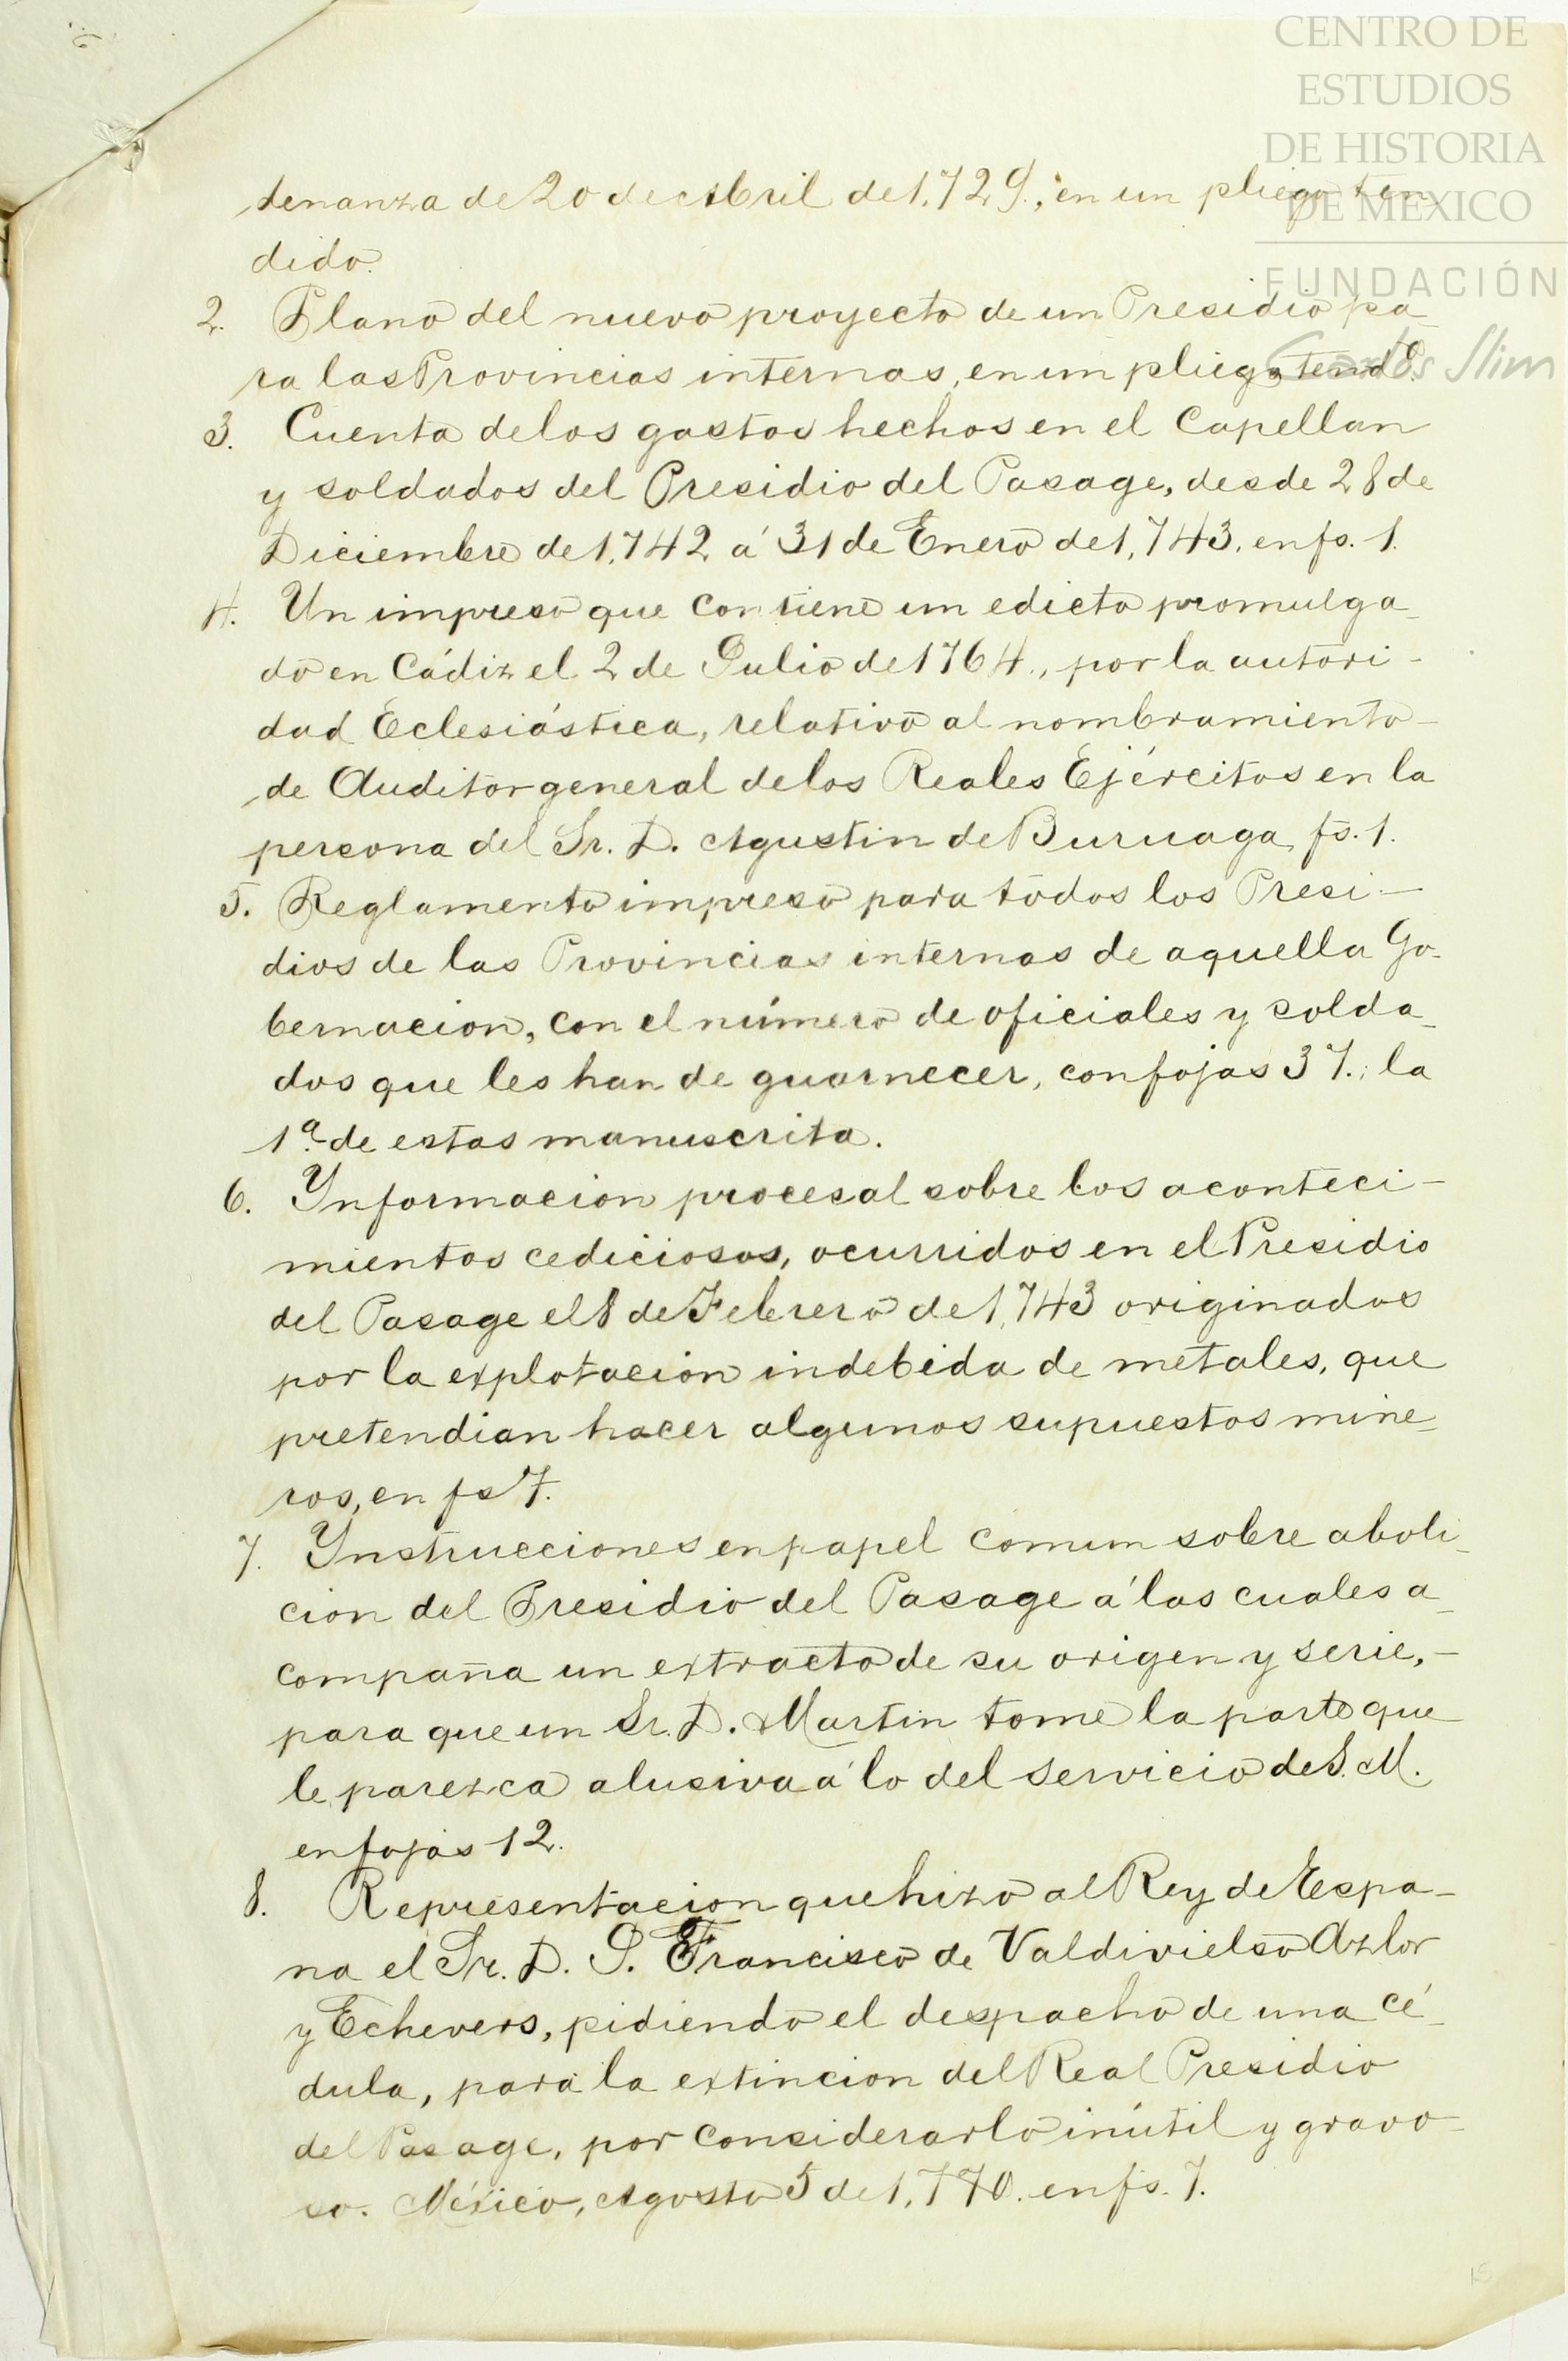 CENTRO DE
ESTUDIOS
DE HISTORIA
DE MEXICO
FUNDACIÓN
Carlos Slim
denanza de 20 de Abril de 1,729., en un pliego ten-
dido.
2. Plano del nuevo proyecto de un Presidio pa-
ra las Provincias internas, en un pliego tendº.
3. Cuenta de los gastos hechos en el Capellan
y soldados del Presidio del Pasage, desde 28 de
Diciembre de 1,742 á 31 de Enero de 1,743. en fs. 1.
4. Un impreso que contiene un edicto promulga-
do en Cádiz el 2 de Julio de 1764., por la autori-
dad Eclesiástica, relativo al nombramiento-
de Auditor general de los Reales Ejércitos en la
persona del Sr. D. Agustin de Buruaga, fs. 1.
5. Reglamento impreso para todos los Presi-
dios de las Provincias internas de aquella Go-
bernacion, con el número de oficiales y solda-
dos que les han de guarnecer, con fojas 37.; la
1ª de estas manuscrita.
6. Ynformacion procesal sobre los aconteci-
mientos cediciosos, ocurridos en el Presidio
del Pasage el 8 de Febrero de 1,743 originados
por la explotacion indebida de metales, que
pretendian hacer algunos supuestos mine-
ros, en fs 7.
7. Ynstrucciones en papel comun sobre aboli-
cion del Presidio del Pasage á las cuales a-
compaña un extracto de su origen y serie,-
para que un Sr. D. Martin tome la parte que
le parezca alusiva á lo del servicio de S. M.
en fojas 12.
8. Representacion que hizo al Rey de Espa-
na el Sr. D. P. Francisco de Valdivielso Azlor
y Echevers, pidiendo el despacho de una cé-
dula, para la extincion del Real Presidio
del Pasage, por considerarlo inútil y gravo-
so. México, Agosto 5 de 1,770. en fs. 7.
15